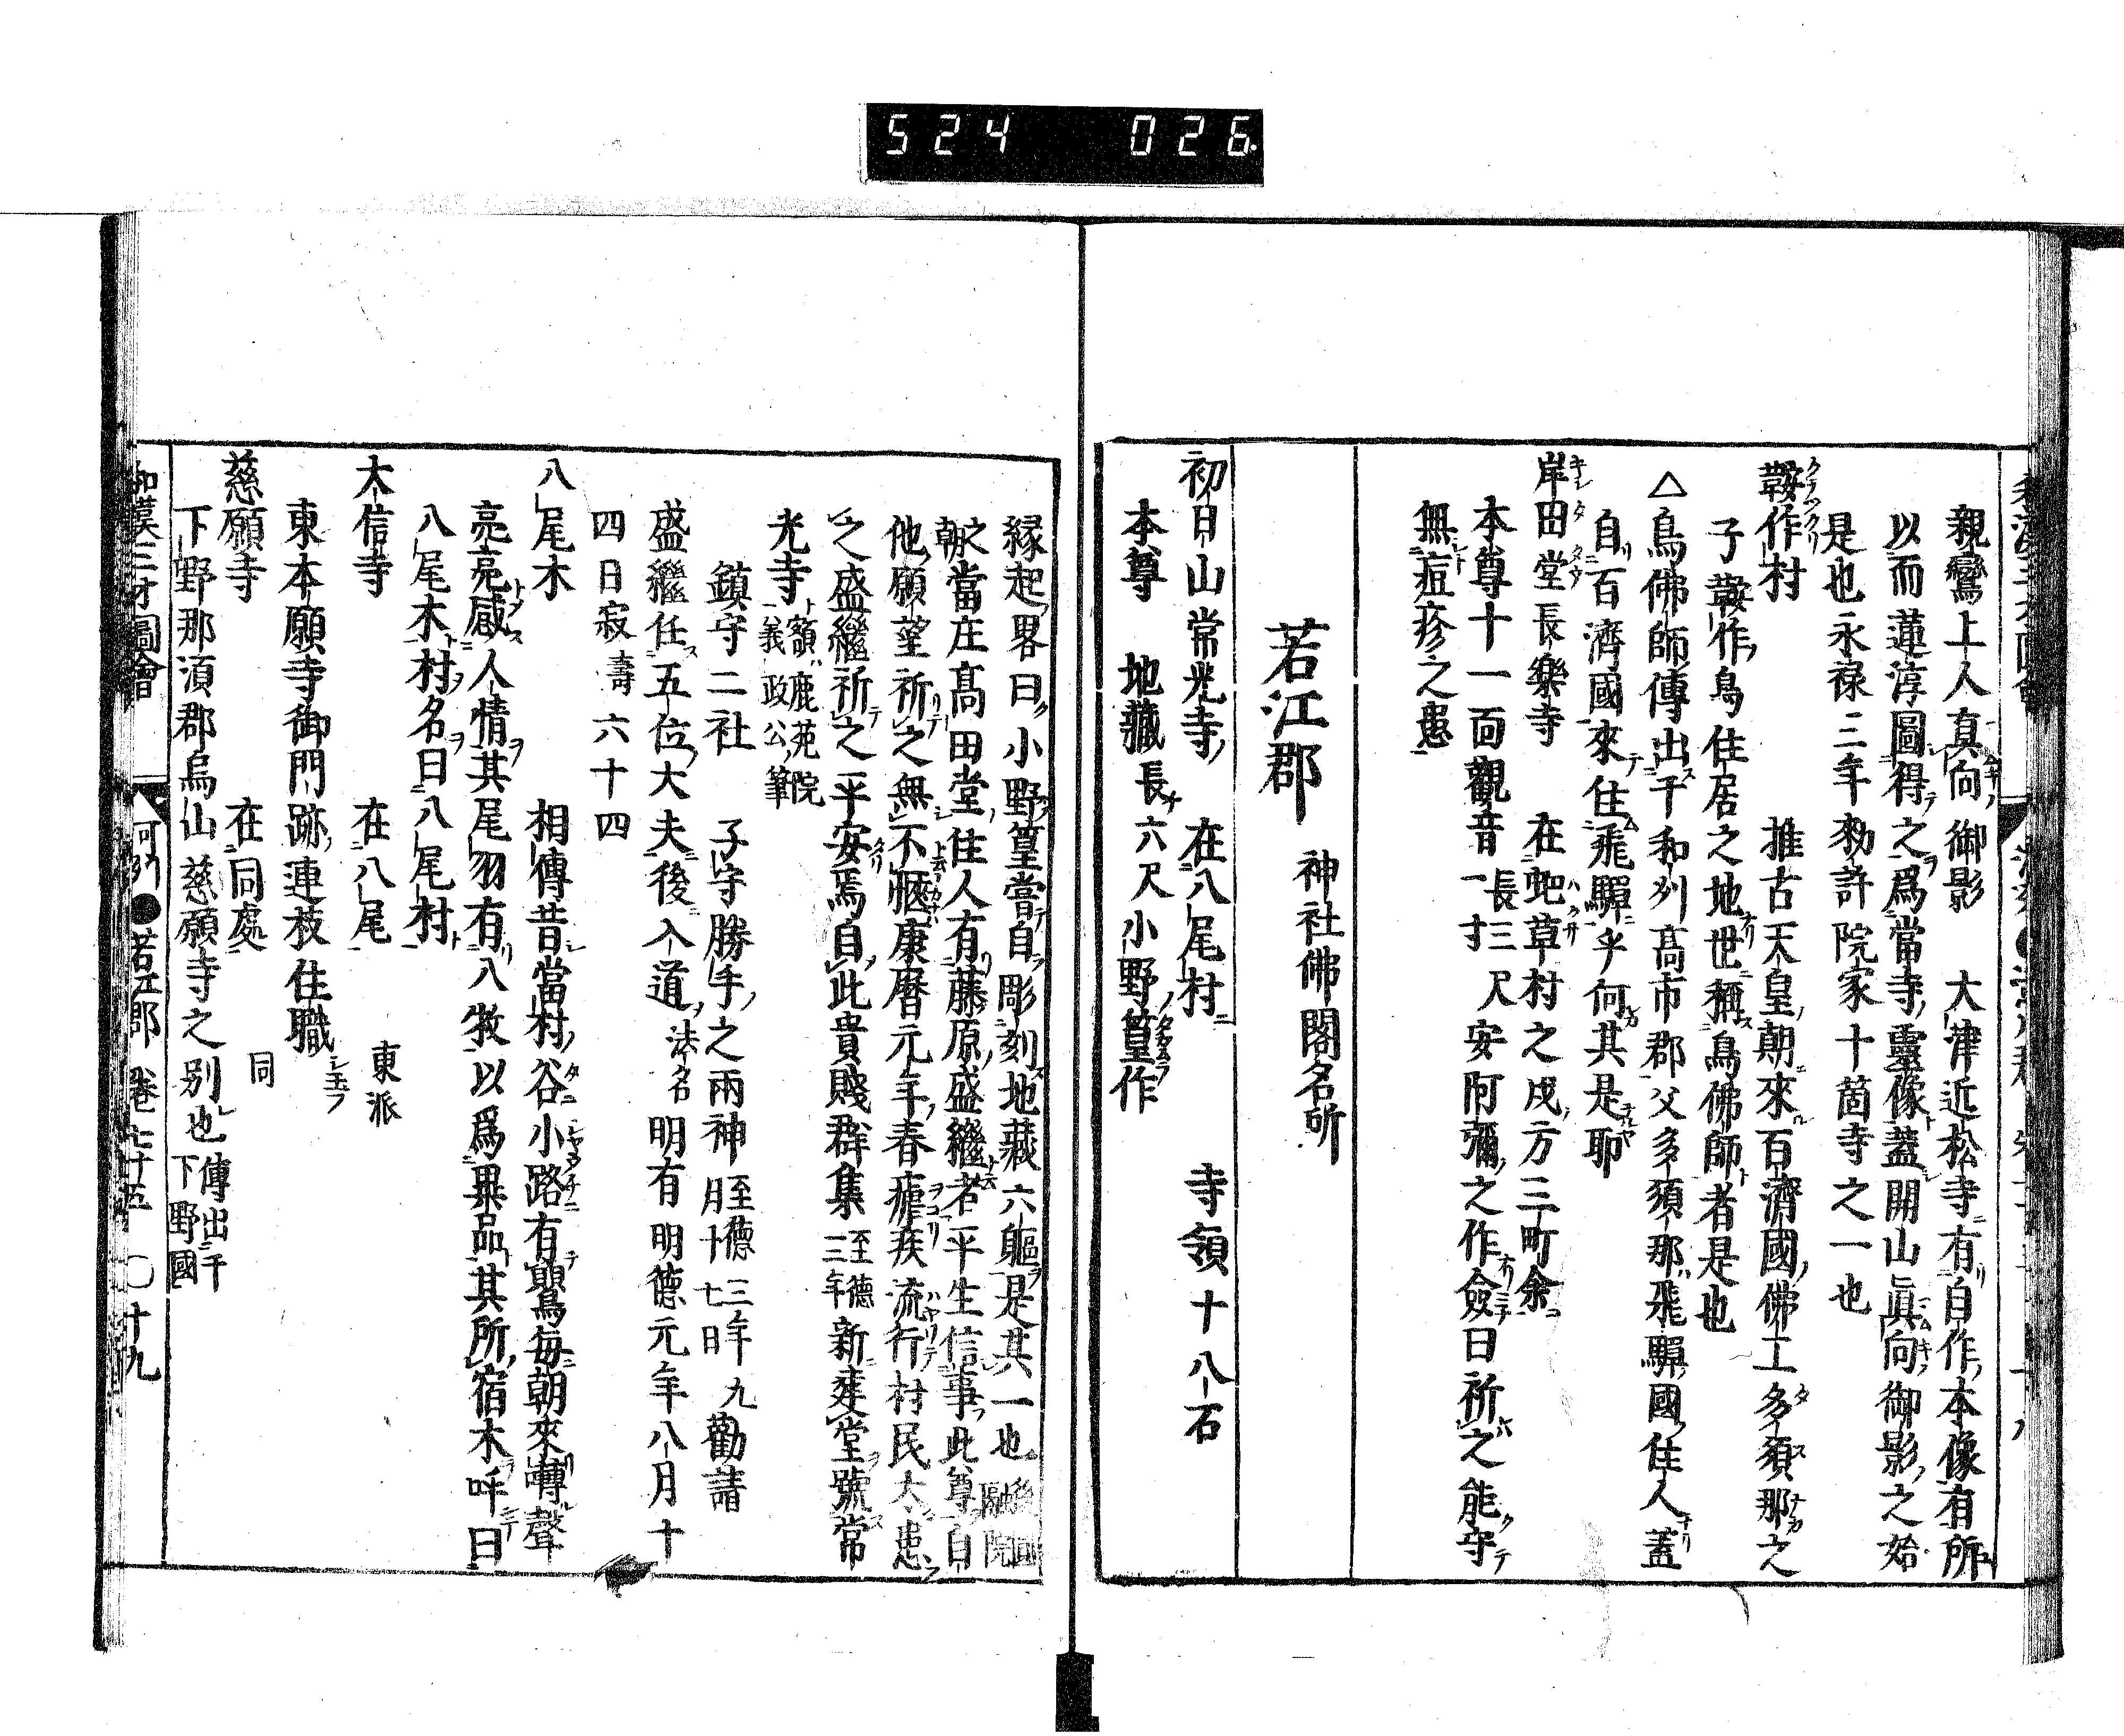 524 026
親鸞上人真向御影 大津近松寺有自作本像有所
以而蓮淳圖得之爲當寺靈像蓋開山眞向御影之始
是也永禄三年勅許院家十箇寺之一也
鞍作村 推古天皇朝來百濟國佛工多須那之
子鞍作鳥住居之地世稱鳥佛師者是也
△鳥佛師傳出于和州高市郡父多須那飛驒國住人蓋
自百濟國來住飛驒乎何其是耶
岸田堂長樂寺 在虵草村之戌方三町余
本尊十一面觀音 長三尺一寸 安阿彌之作僉曰祈之能守
無痘疹之患
若江郡 神社佛閣名所
初日山常光寺 在八尾村 寺領十八石
本尊 地藏 長六尺小野篁作
縁起畧曰小野篁嘗自彫刻地藏六軀是其一也
朝之當庄高田堂住人有藤原盛繼者平生信事此尊自
他願望祈之無不愜康暦元年春瘧疾流行村民大患
之盛繼祈之平安焉自此貴賤群集 至德三年 新建堂號常
光寺 額鹿苑院義政公筆
鎮守二社 子守勝手之兩神 至德三年九月十七日 勸請
盛繼任五位大夫後入道法名明有明德元年八月十
四日寂壽六十四
八尾木 相傳昔當村谷小路有鸎毎朝來囀聲
亮亮感人情其尾羽有八枚以爲異品其所宿木呼曰
八尾木村名曰八尾村
大信寺 在八尾 東派
東本願寺御門跡連枝住職
慈願寺 在同處 同
下野那須郡烏山慈願寺之別也 傳出于下野國
和漢三才圖會 河州●若江郡 卷七十五 〇十九